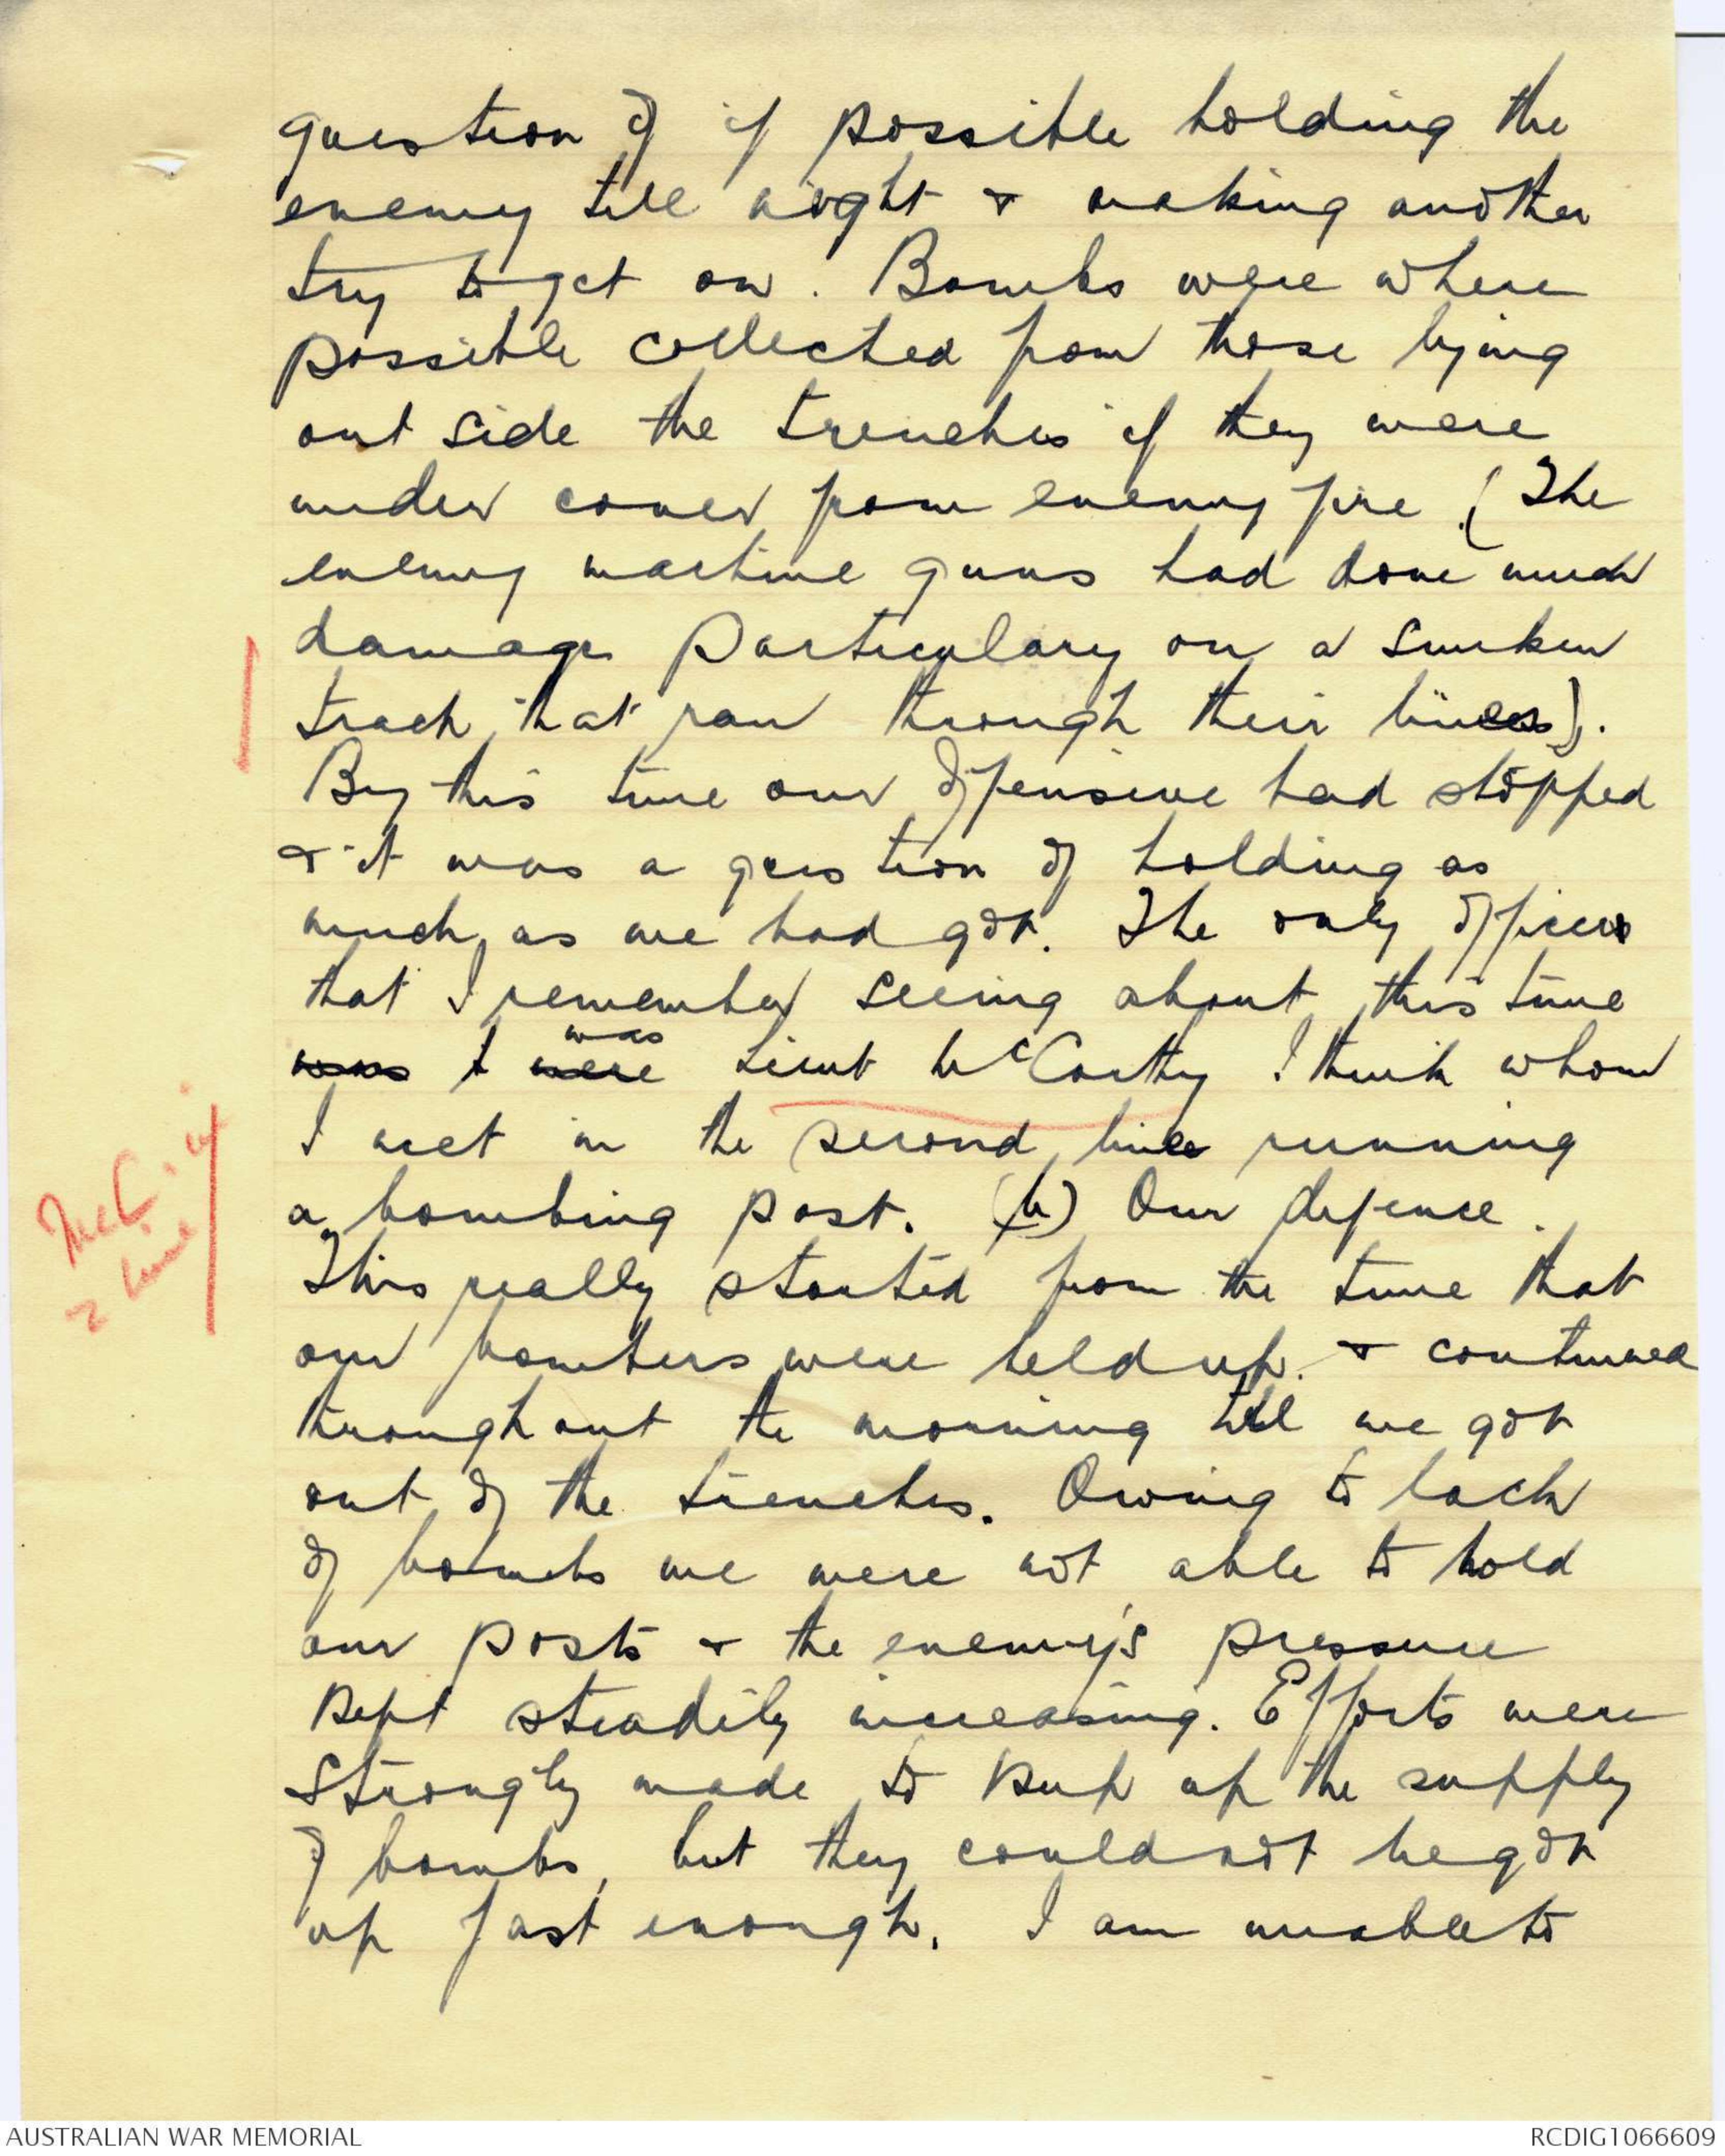 question of if possible holding the
enemy till night & making another
try to get on. Bombs were where
possible collected from those lying
out side the trenches if they were
under cover from enemy fire. (The
enemy machine guns had done much
damage particulary on a sunken
track that ran through their lines).
By this time our offensive had stopped
& it was a question of holding as
much as we had got. The only officer
that I remember seeing about this time
was I were was Lieut McCarthy I think whom
I met in the second line running
a bombing post. (b) Our defense.
This really started from the time that
our bombers were held up. & continued
throughout the morning till we got
out of the trenches. Owing to lack
of bombs we were not able to hold
our posts & the enemy's pressure
kept steadily increasing. Efforts were
strongly made to keep up the supply
of bombs, but they could not be got
up fast enough. I am unable to
McC. in
2 line
AUSTRALIAN WAR MEMORIAL
RCDIG1066609